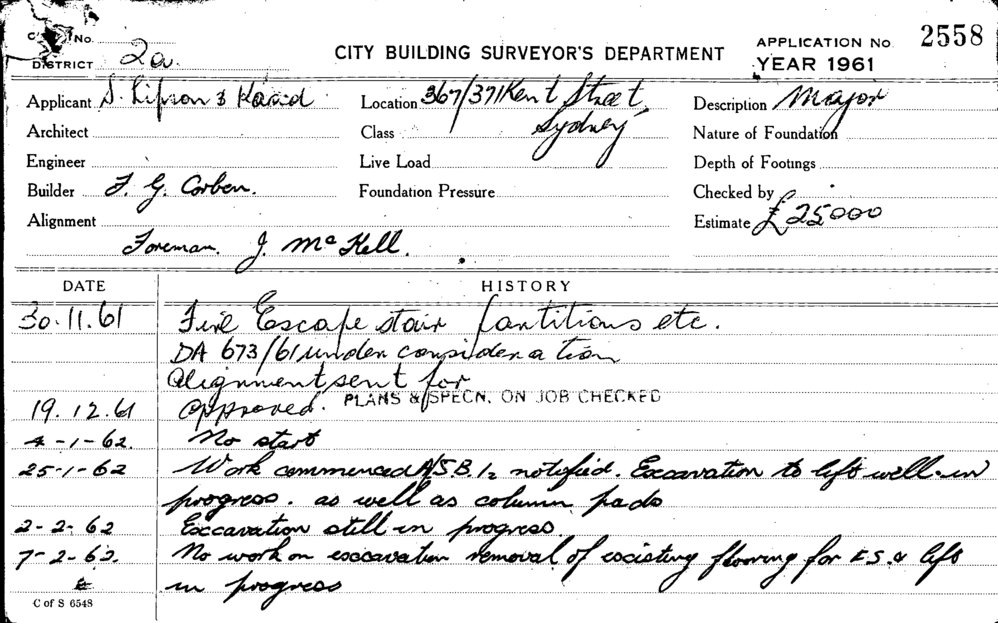 No.
DISTRICT 2a.
CITY BUILDING SURVEYOR'S DEPARTMENT
APPLICATION No 2558
YEAR 1961
Applicant S. Lipson & Kaad
Location 367/371 Kent Street, Sydney
Description Major
Architect
Class
Nature of Foundation
Engineer
Live Load
Depth of Footings
Builder F. G. Corben.
Foundation Pressure
Checked by
Alignment
Estimate £25000
Foreman. J. McKell.
DATE HISTORY
30.11.61 Fire Escape stair partitions etc.
DA 673/61 under consideration
Alignment sent for
19.12.61 Approved. PLANS & SPECN. ON JOB CHECKED
4-1-62. No start
25-1-62 Work commenced notified. Excavation to lift well in
progress. as well as column pads
2-2-62 Excavation still in progress.
7-2-62. No work on excavation removal of existing flooring for F.S. & lift
in progress
C of S 6548